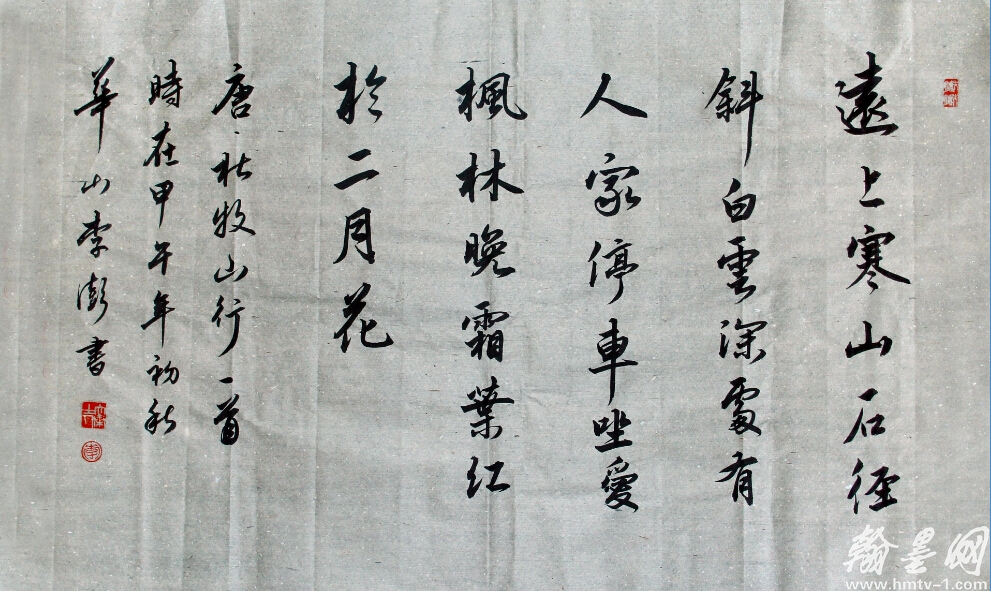 遠上寒山石径
斜白雲深處有
人家停車坐愛
楓林晚霜葉红
於二月花
唐杜牧山行一首
時在甲午年初秋
華山李澎書
翰墨网
www.hmtv-1.com